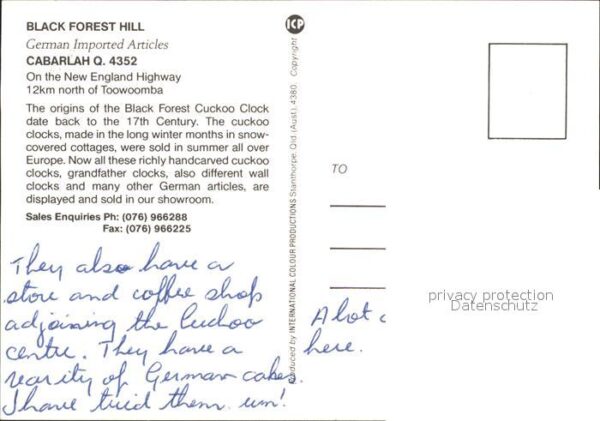 BLACK FOREST HILL
German Imported Articles
CABARLAH Q. 4352
On the New England Highway
12km north of Toowoomba
The origins of the Black Forest Cuckoo Clock
date back to the 17th Century. The cuckoo
clocks, made in the long winter months in snow-
covered cottages, were sold in summer all over
Europe. Now all these richly handcarved cuckoo
clocks, grandfather clocks, also different wall
clocks and many other German articles, are
displayed and sold in our showroom.
Sales Enquiries Ph: (076) 966288
Fax: (076) 966225
They also have a
store and coffee shop
adjoining the Cuckoo
centre. They have a
of German cakes.
I have tried them. um!
ICP
Produced by INTERNATIONAL COLOUR PRODUCTIONS Stanthorpe, Qld. (Aust.) 4380. Copyright
TO
A lot
here.
privacy protection
Datenschutz